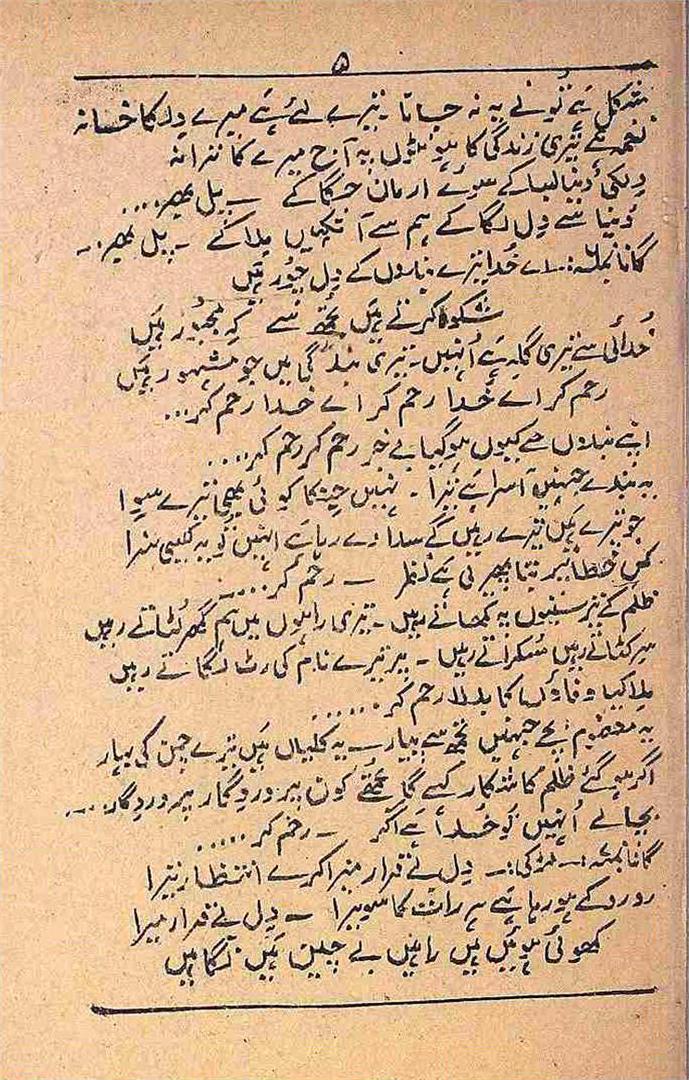 ۵
مشکل ہے تو نے یہ نہ جانا ۔ تیرے لئے ہے میرے دل کا فسانہ
نغمہ ہے تیری زندگی کا ہونٹوں پہ آج میرے کا ترانہ
دل کی دنیا بسا کے سوئے ارمان جگا کے ۔ پل بھر ....
دُنیا سے دِل لگا کے ہم سے آنکھیں ملا کے ۔ پل بھر ...
گانا نمبر ۶ :۔ اے خُدا تیرے بندوں کے دِل چُور ہیں
شکوہ کرتے ہیں تجھ سے کہ مجبور ہیں
خُدائی سے تیری گلہ ہے اُنہیں ۔ تیری بندگی میں جو مشہور ہیں
رحم کر اے خُدا رحم کر اے خدا رحم کر ...
اپنے بندوں سے کیوں ہو گیا بے خبر رحم کر رحم کر ....
یہ بندے جنہیں آسرا ہے تیرا ۔ نہیں جنکا کوئی بھی تیرے سوا
جو تیرے ہیں تیرے رہیں گے سدا دے رہا ہے انہیں تو یہ کیسی سزا
کس خطا پر بتا پھیر لی ہے نظر ۔ رحم کر ....
ظلم کے تیر سینوں پہ کھاتے رہیں ۔ تیری راہوں میں ہم گھر لٹاتے رہیں
سر کٹاتے رہیں مُسکراتے رہیں ۔ پر تیرے نام کی رٹ لگاتے رہیں
ملا کیا وفاؤں کا بدلا رحم کر ......
یہ معصوم بچے جنہیں تجھ سے پیار ۔ یہ کلیاں ہیں تیرے چمن کی بہار
اگر ہو گئے ظلم کا شکار کہے گا تجھے کون پروردگار پروردگار ....
بچا لے اُنہیں تو خُدا ہے اگر ۔ رحم کر .....
گانا نمبر :۔ لڑکی :۔ دِل بے قرار میرا کرے انتظار تیرا
رو رو کے ہو رہا ہے ہر رات کا سویرا ۔ دِل بے قرار میرا
کھوئی ہوئیں ہیں راہیں بے چین ہیں نگاہیں